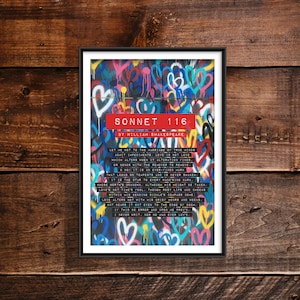 SONNET 116
BY WILLIAM SHAKESPEARE
LET ME NOT TO THE MARRIAGE OF TRUE MINDS
ADMIT IMPEDIMENTS. LOVE IS NOT LOVE
WHICH ALTERS WHEN IT ALTERATION FINDS,
OR BENDS WITH THE REMOVER TO REMOVE.
O NO! IT IS AN EVER-FIXED MARK
THAT LOOKS ON TEMPESTS AND IS NEVER SHAKEN;
IT IS THE STAR TO EVERY WANDERING BARK,
WHOSE WORTH'S UNKNOWN, ALTHOUGH HIS HEIGHT BE TAKEN.
LOVE'S NOT TIME'S FOOL, THOUGH ROSY LIPS AND CHEEKS
WITHIN HIS BENDING SICKLE'S COMPASS COME;
LOVE ALTERS NOT WITH HIS BRIEF HOURS AND WEEKS,
BUT BEARS IT OUT EVEN TO THE EDGE OF DOOM.
IF THIS BE ERROR AND UPON ME PROVED,
I NEVER WRIT, NOR NO MAN EVER LOVED.